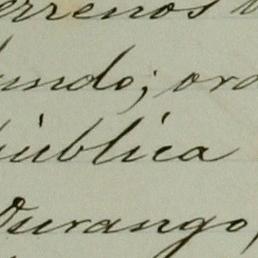 terrenos
undo; ord
pública
Durango,